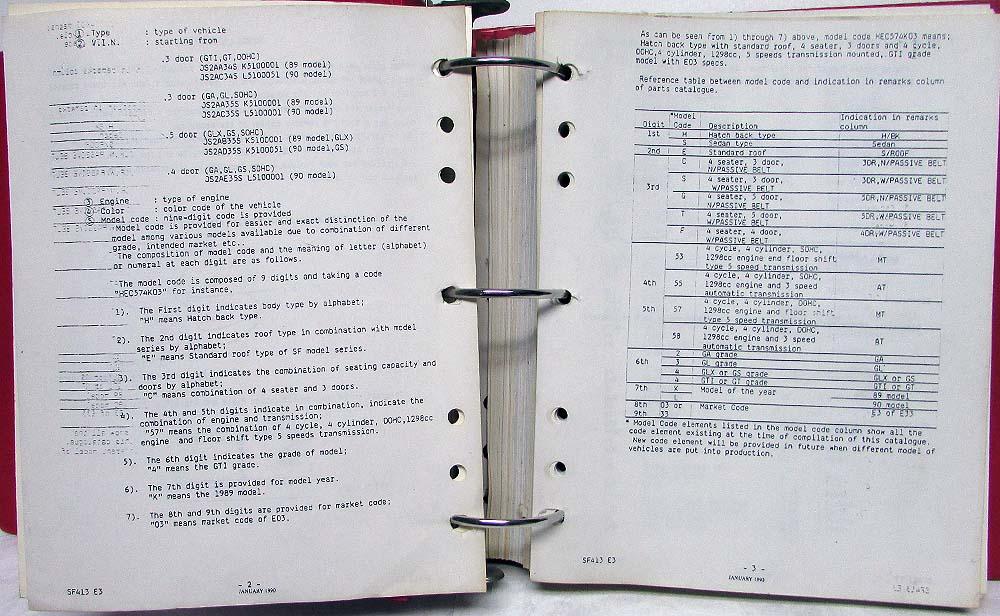 ① Type : type of vehicle
② V.I.N. : starting from
.3 door (GTI,GT,DOHC)
JS2AA34S K5100001 (89 model)
JS2AC34S L5100051 (90 model)
.3 door (GA,GL,SOHC)
JS2AA35S K5100001 (89 model)
JS2AC35S L5100001 (90 model)
.5 door (GLX,GS,SOHC)
JS2AB35S K5100001 (89 model,GLX)
JS2AD35S K5100051 (90 model,GS)
.4 door (GA,GL,GS,SOHC)
JS2AE35S L5100001 (90 model)
③ Engine : type of engine
④ Color : color code of the vehicle
⑤ Model code : nine-digit code is provided
Model code is provided for easier and exact distinction of the
model among various models available due to combination of different
grade, intended market etc..
The composition of model code and the meaning of letter (alphabet)
or numeral at each digit are as follows.
The model code is composed of 9 digits and taking a code
"HEC574K03" for instance.
1). The First digit indicates body type by alphabet;
"H" means Hatch back type.
2). The 2nd digit indicates roof type in combination with model
series by alphabet;
"E" means Standard roof type of SF model series.
3). The 3rd digit indicates the combination of seating capacity and
doors by alphabet;
"C" means combination of 4 seater and 3 doors.
4). The 4th and 5th digits indicate in combination, indicate the
combination of engine and transmission;
"57" means the combination of 4 cycle, 4 cylinder, DOHC,1298cc
engine and floor shift type 5 speeds transmission.
5). The 6th digit indicates the grade of model;
"4" means the GTI grade.
6). The 7th digit is provided for model year.
"K" means the 1989 model.
7). The 8th and 9th digits are provided for market code;
"03" means market code of E03.
SF413 E3
- 2 -
JANUARY 1990
As can be seen from 1) through 7) above, model code HEC574K03 means;
Hatch back type with standard roof, 4 seater, 3 doors and 4 cycle,
DOHC,4 cylinder, 1298cc, 5 speeds transmission mounted, GTI grade
model with E03 specs.
Reference table between model code and indication in remarks column
of parts catalogue.
Digit *Model Code Description Indication in remarks column
1st H Hatch back type H/BK
S Sedan type Sedan
2nd E Standard roof S/ROOF
3rd C 4 seater, 3 door, N/PASSIVE BELT 3DR,N/PASSIVE BELT
S 4 seater, 3 door, W/PASSIVE BELT 3DR,W/PASSIVE BELT
G 4 seater, 5 door, N/PASSIVE BELT 5DR,N/PASSIVE BELT
T 4 seater, 5 door, W/PASSIVE BELT 5DR,W/PASSIVE BELT
F 4 seater, 4 door, W/PASSIVE BELT 4DR,W/PASSIVE BELT
4th 53 4 cycle, 4 cylinder, SOHC, 1298cc engine end floor shift type 5 speed transmission MT
55 4 cycle, 4 cylinder, SOHC, 1298cc engine and 3 speed automatic transmission AT
5th 57 4 cycle, 4 cylinder, DOHC, 1298cc engine and floor shift type 5 speed transmission MT
58 4 cycle, 4 cylinder, DOHC, 1298cc engine and 3 speed automatic transmission AT
6th 2 GA grade GA
3 GL grade GL
4 GLX or GS grade GLX or GS
4 GTI or GT grade GTI or GT
7th K Model of the year 89 model
L 90 model
8th 03 or Market Code E3 or E33
9th 33
* Model Code elements listed in the model code column show all the
code element existing at the time of compilation of this catalogue.
New code element will be provided in future when different model of
vehicles are put into production.
SF413 E3
- 3 -
JANUARY 1990